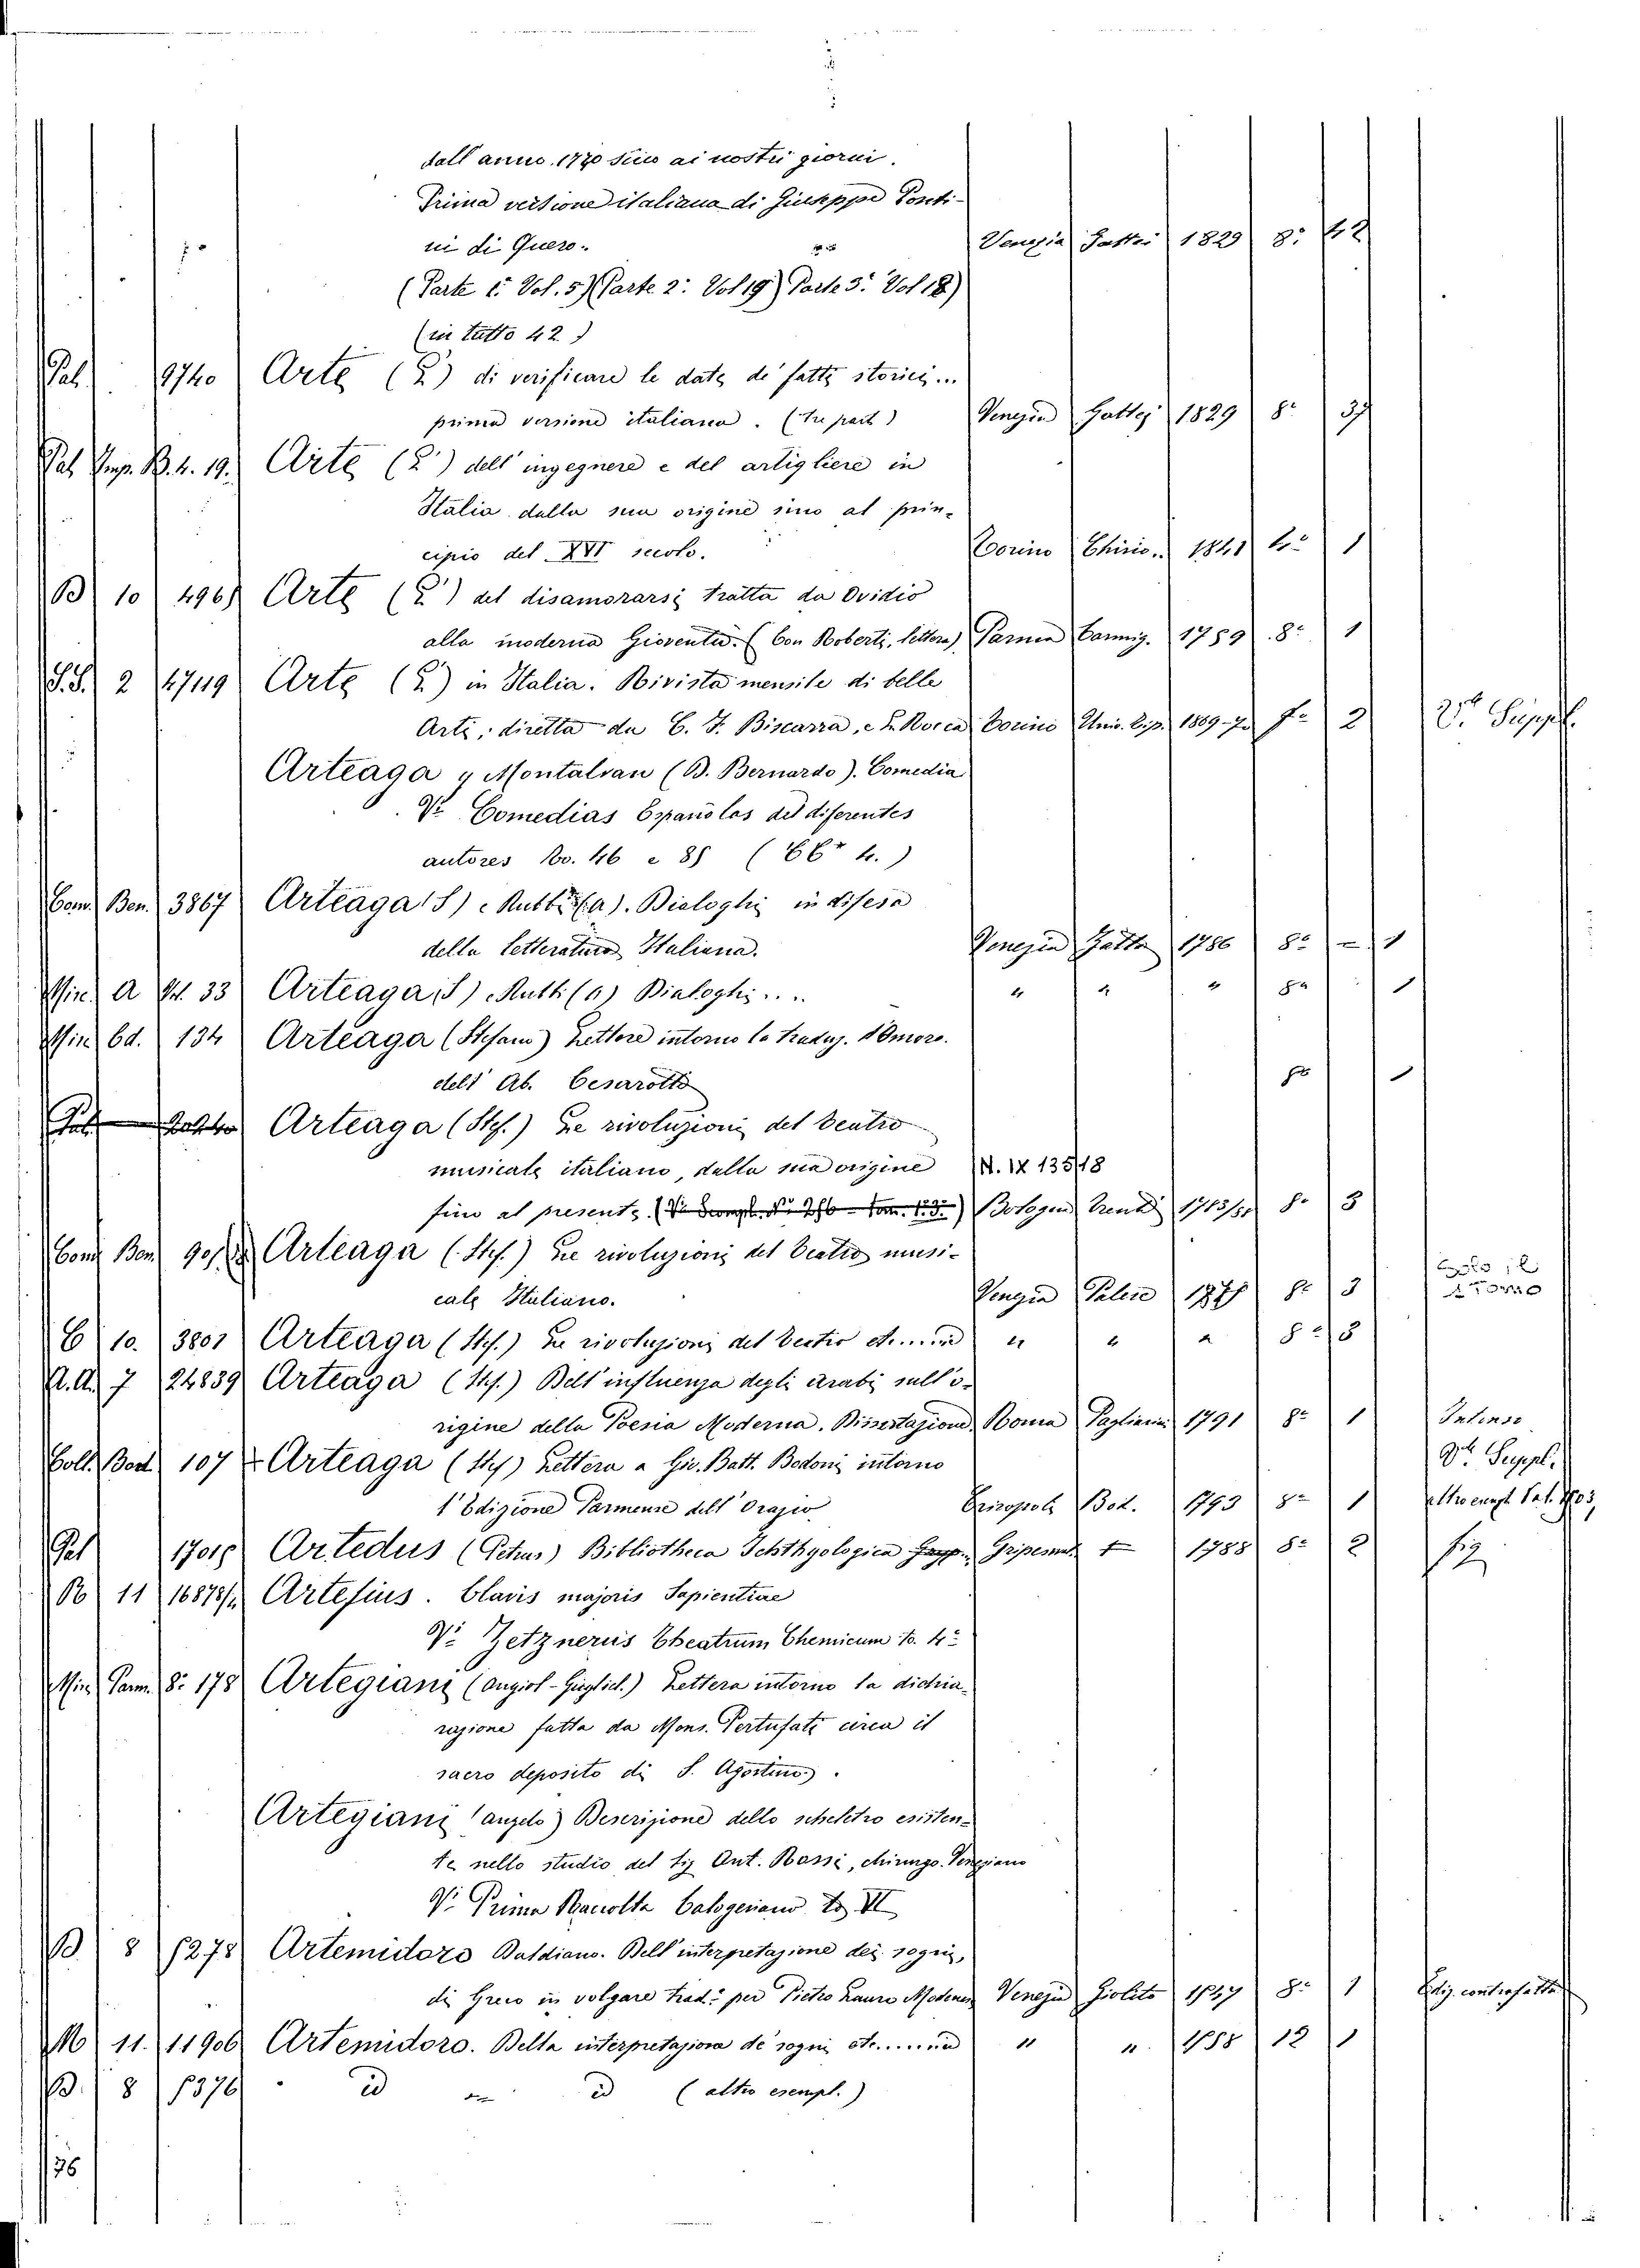 dall'anno 1770 sino ai nostri giorni.
Prima versione italiana di Giuseppe Ponti-
ni di Quero. Venezia Gattei 1829 8º 42
(Parte 1ª Vol. 5) (Parte 2ª Vol 19) Parte 3ª Vol 18)
(in tutto 42.)
Pal. 9740 Arte (L') di verificare le date de' fatti storici...
prima versione italiana. Venezia Gattei 1829 8º 37
Pal. Imp. B. 4. 19. Arte (L') dell'ingegnere e del artigliere in
Italia dalla sua origine sino al prin-
cipio del XVI secolo. Torino Chirio. 1841 4º 1
B 10 4968 Arte (L') del disamorarsi tratta da Ovidio
alla moderna Gioventù. (Con Roberti, lettera) Parma Carmig. 1789 8º 1
S.S. 2 47119 Arte (L') in Italia. Rivista mensile di belle
Arti, diretta da C. F. Biscarra, e L. Rocca Torino Uni. Tip. 1869-70 fº 2 Vº Suppl.
Arteaga y Montalvan (B. Bernardo). Comedia
Vº Comedias Españolas del diferentes
autores to. 46 e 88
Com. Ben. 3867 Arteaga (S) e Rubbi (A). Dialoghi in difesa
della letteratura Italiana. Venezia Gatto 1786 8º = 1
Min. A 33 Arteaga (S) e Rutti (A) Dialoghi.... " " " 8º 1
Min. Cd. 134 Arteaga (Stefano) Lettere intorno la traduz. d'Omero.
dell'Ab. Cesarotti 8º 1
Pal. Arteaga (Stef.) Le rivoluzioni del Teatro
musicale italiano, dalla sua origine N. IX 13518
fino al presente. Bologna Trenti 1783/88 8º 3
Com. Ben. Arteaga (Stef.) Le rivoluzioni del Teatro musi-
cale Italiano. Venezia Palese 8º 3
C 10. 3801 Arteaga (Stef.) Le rivoluzioni del Teatro etc. " " " 8º 3
A.A. 7 24839 Arteaga (Stef.) Dell'influenza degli arabi sull'o-
rigine della Poesia Moderna. Dissertazione. Roma Pagliarini 1791 8º 1 Intenso
Coll. Bod. 107 Arteaga (Stef) Lettera a Gio. Batt. Bodoni intorno Vº Suppl.
l'Edizione Parmense dell'Orazio Crisopoli Bod. 1793 8º 1 altro esempl. Pal.
Pal Artedus (Petrus) Bibliotheca Ichthyologica 1788 8º 2 fig
B 11 Artefius. Clavis majoris Sapientiae
Vº Zetznerus Theatrum Chemicum to. 4º
Min. Parm. 8º 178 Artegiani (Angiol-Guglich.) Lettera intorno la dichia-
razione fatta da Mons. Pertusati circa il
sacro deposito di S. Agostino.
Artegiani (Angelo) Descrizione dello scheletro esisten-
te nello studio del Sig Ant. Rossi, chirurgo Veneziano
Vº Prima Raccolta Calogeriana to VI
B 8 1278 Artemidoro Daldiano. Dell'interpretazione dei sogni,
di Greco in volgare trad. per Pietro Lauro Modenese Venezia Giolito 8º 1 Ediz. contrafatta
M 11. 11906 Artemidoro. Della interpretazione de' sogni etc. " " 1558 12 1
B. 8 1376 id id (altro esempl.)